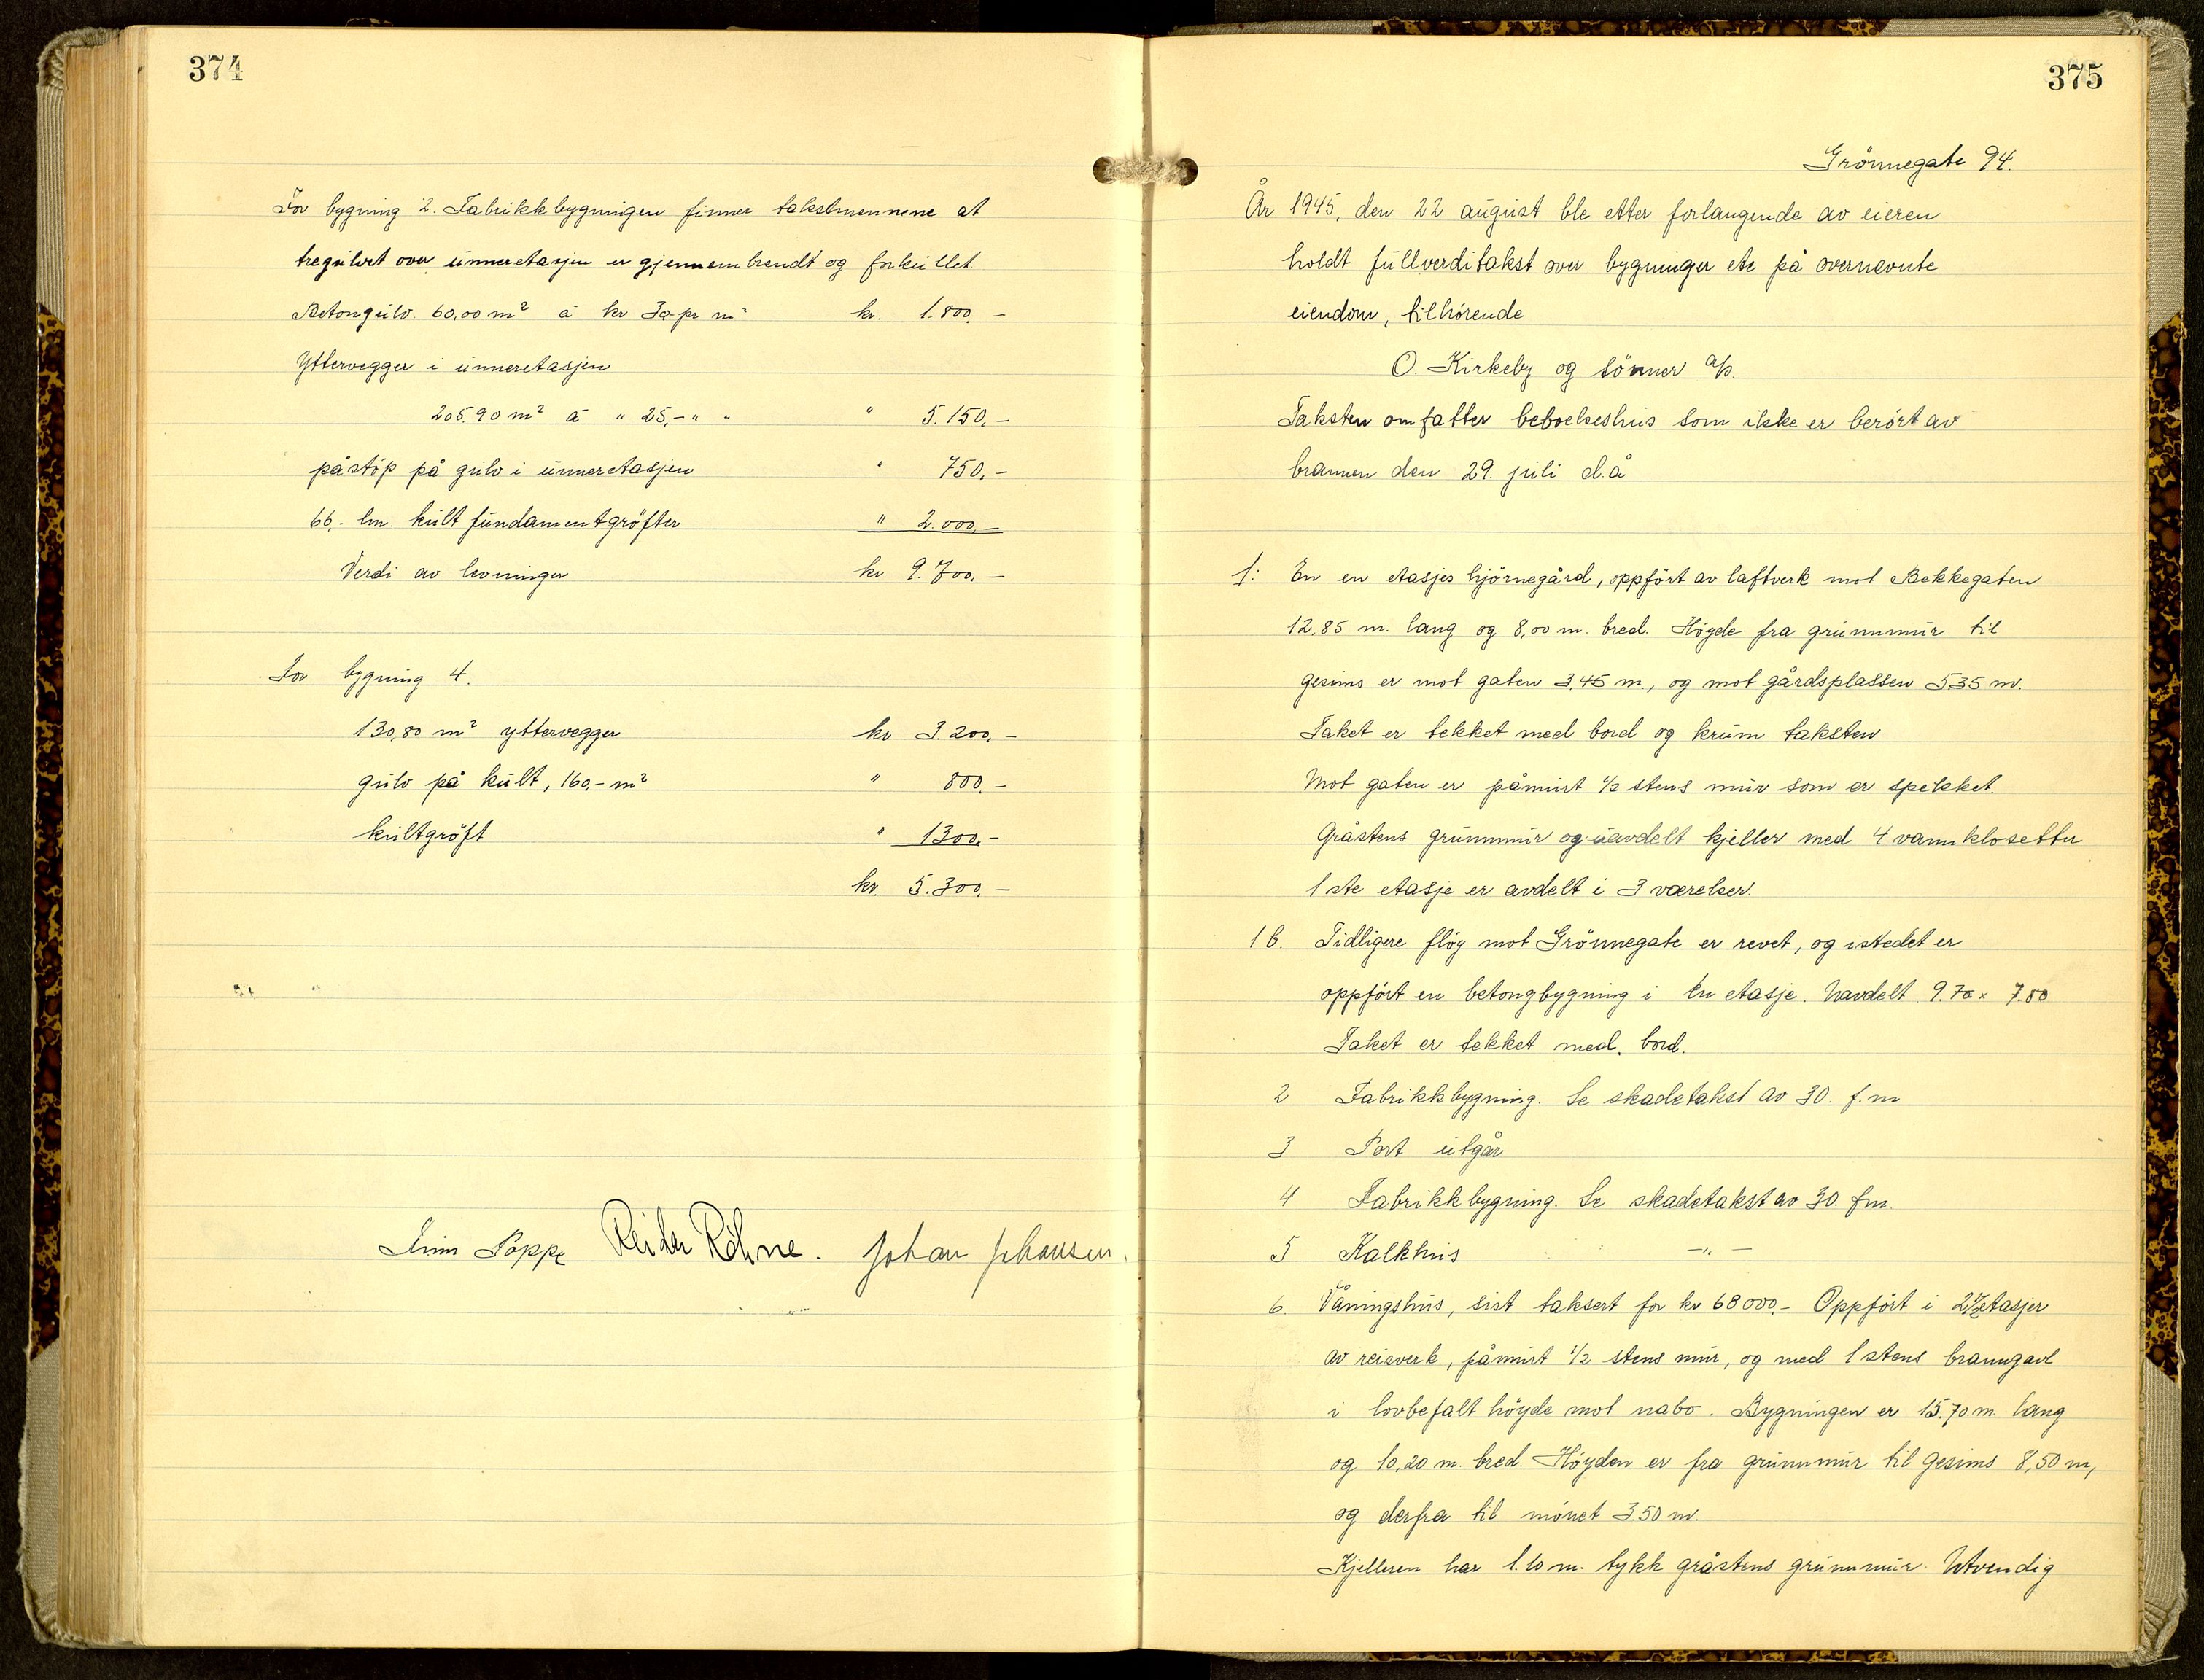 374
For bygning 2. Fabrikkbygningen finner takstmennene at
tregulvet over unneretasjen er gjennembrendt og forkullet
Betongulv. 60,00 m² á kr 30 pr m² kr. 1.800.-
Yttervegger i unneretasjen
205,90 m² á " 25,- " " " 5.150.-
påstöp på gulv i unneretasjen " 750.-
66,- lm. kult fundamentgröfter " 2.000,-
Verdi av levninger kr 9.700.-
For bygning 4.
130,80 m² yttervegger kr 3.200,-
gulv på kult, 160,- m² " 800.-
kultgröft " 1300,-
kr. 5.300.-
Poppe Reidar Röhne. Johan Johansen.
375
Grönnegate 94.
År 1945, den 22 august ble etter forlangende av eieren
holdt fullverditakst over bygninger etc på overnevnte
eiendom, tilhörende
O. Kirkeby og sönner a/s.
Taksten omfatter beboelseshus som ikke er berört av
brannen den 29. juli d.å
1: En en etasjes hjörnegård, oppfört av laftverk mot Bekkegaten
12,85 m. lang og 8,00 m. bred. Höyde fra grunnmur til
gesims er mot gaten 3,45 m., og mot gårdsplassen 5.35 m.
Taket er tekket med bord og krum taksten
Mot gaten er påmurt 1/2 stens mur som er spekket.
Gråstens grunnmur og uavdelt kjeller med 4 vannklosetter
1ste etasje er avdelt i 3 værelser.
1 b. Tidligere flöy mot Grönnegate er revet, og istedet er
oppfört en betongbygning i en etasje. Uavdelt 9.70 x 7.80
Taket er tekket med. bord.
2 Fabrikkbygning. Se skadetakst av 30. f.m
3 Port utgår
4 Fabrikkbygning. Se skadetakst av 30. fm.
5 Kalkhus -"-
6. Våningshus, sist taksert for kr 68000.- Oppfört i 2 1/2 etasjer
av reisverk, påmurt 1/2 stens mur, og med 1 stens branngavl
i lovbefalt höyde mot nabo. Bygningen er 15.70 m. lang
og 10,20 m. bred. Höyden er fra grunnmur til gesims 8,50 m,
og derfra til mönet 3.50 m.
Kjelleren har 1.10 m. tykk gråstens grunnmur. Utvendig